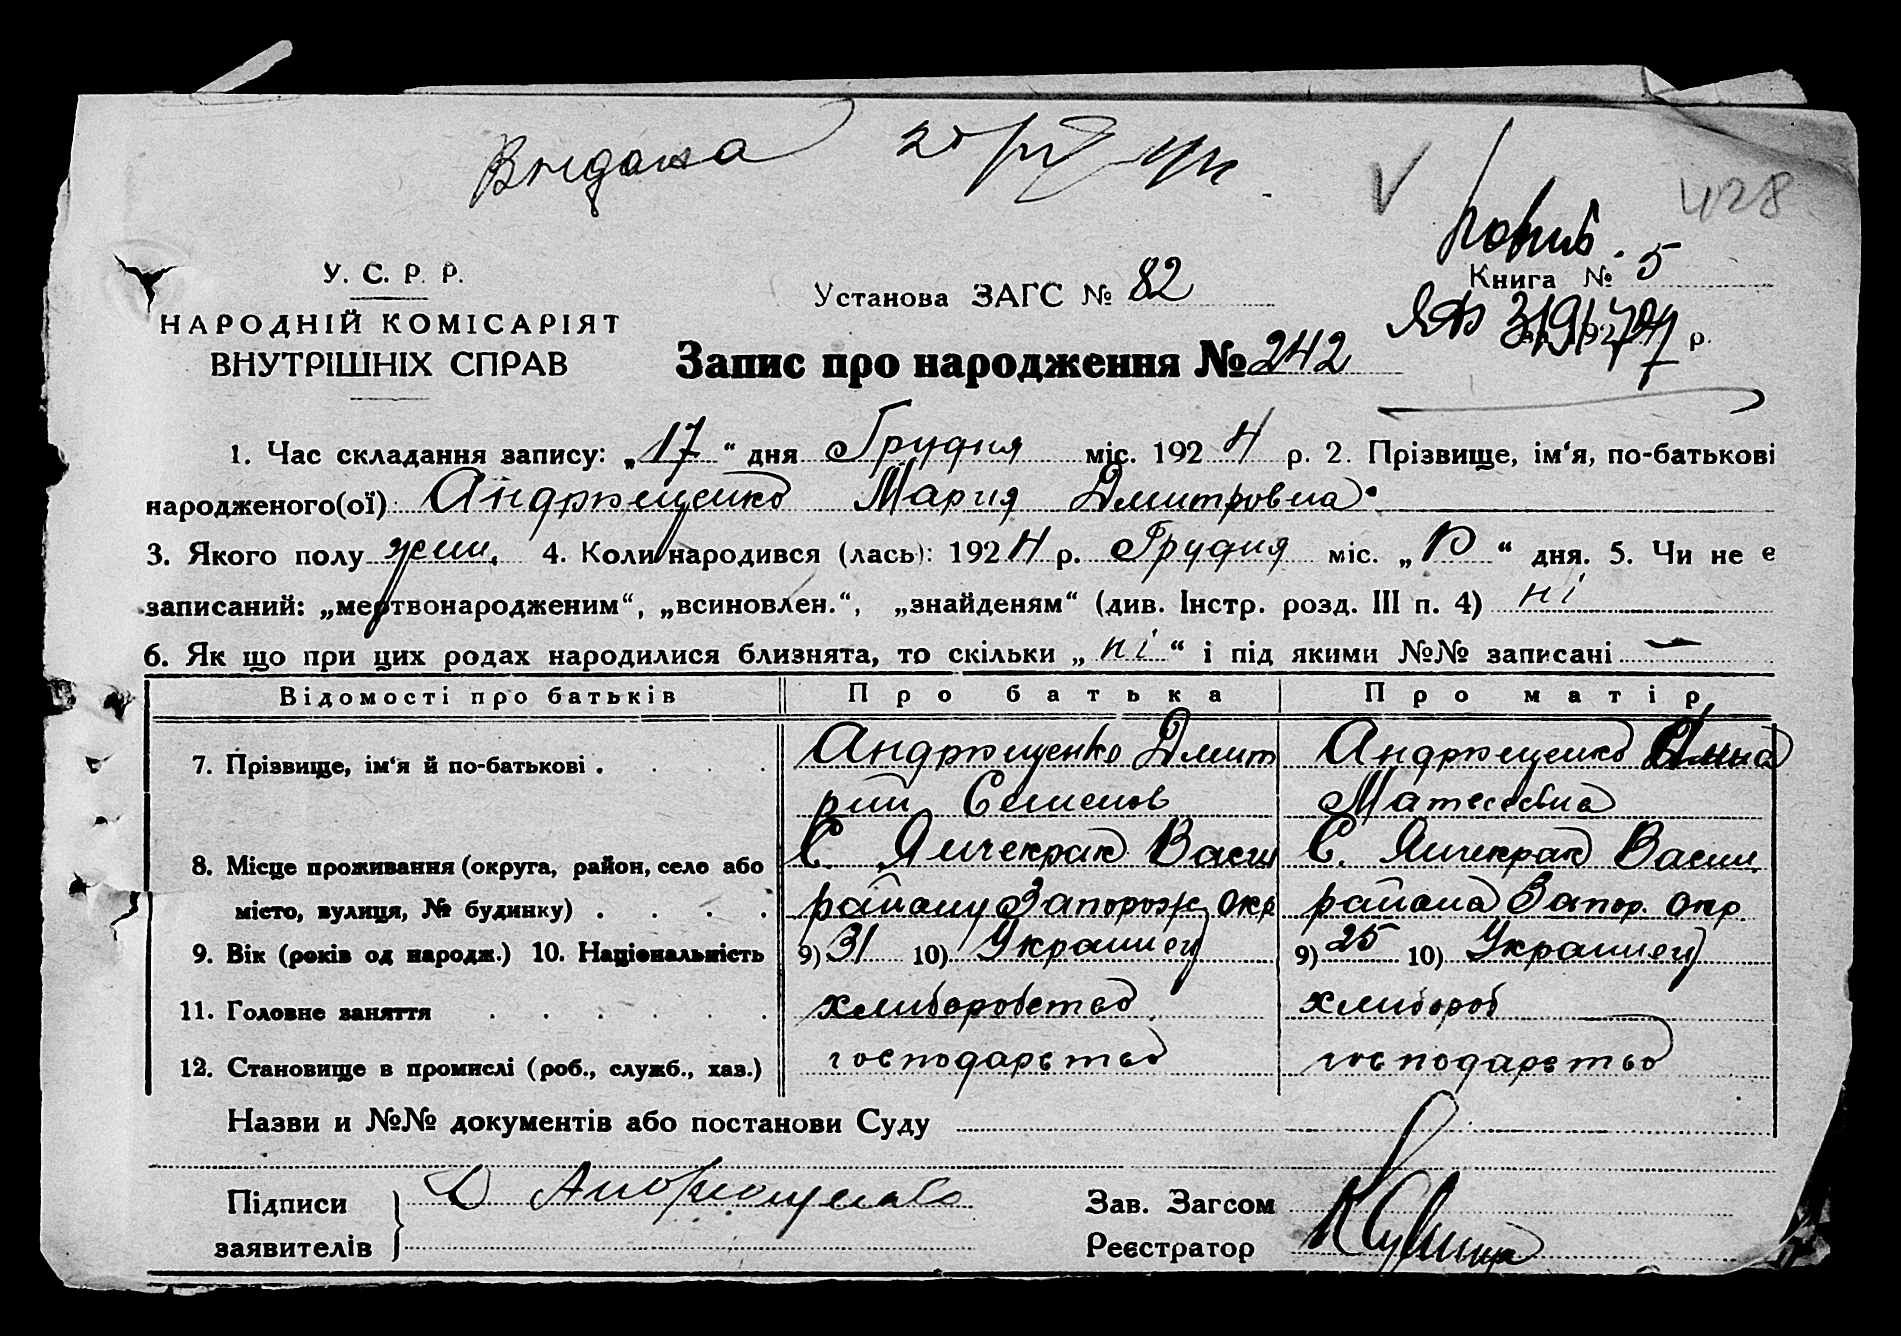 Видана
428
У. С. Р. Р.
НАРОДНІЙ КОМІСАРІЯТ
ВНУТРІШНІХ СПРАВ
Установа ЗАГС № 82
Книга № 5
ЯФ р.
Запис про народження № 242
1. Час складання запису: „17“ дня Грудня міс. 1924 р. 2. Прізвище, ім‘я, по-батькові
народженого(ої) Андрющенко Мария Дмитровна
3. Якого полу жин. 4. Коли народився (лась): 1924 р. Грудня міс. „10“ дня. 5. Чи не є
записаний: „мертвонародженим“, „всиновлен.“, „знайденям“ (див. Інстр. розд. III п. 4) ні
6. Як що при цих родах народилися близнята, то скільки „ні“ і під якими №№ записані —
Відомості про батьків Про батька Про матір
7. Прізвище, ім‘я й по-батькові . Андрющенко Дмит Андрющенко Анна
рий Семенов Матвеевна
8. Місце проживання (округа, район, село або С. Янчекрак Васил С. Янчекрак Васил.
місто, вулиця, № будинку) . . . . району Запорож окр района Запор. окр.
9. Вік (років од народж.) 10. Національність 9) 31 10) Украинец 9) 25 10) Украинец
11. Головне заняття хлиборобство хлибороб
12. Становище в промислі (роб., служб., хаз.) господарство господарство
Назви и №№ документів або постанови Суду
Підписи Д Андрющенко Зав. Загсом
заявителів Реєстратор